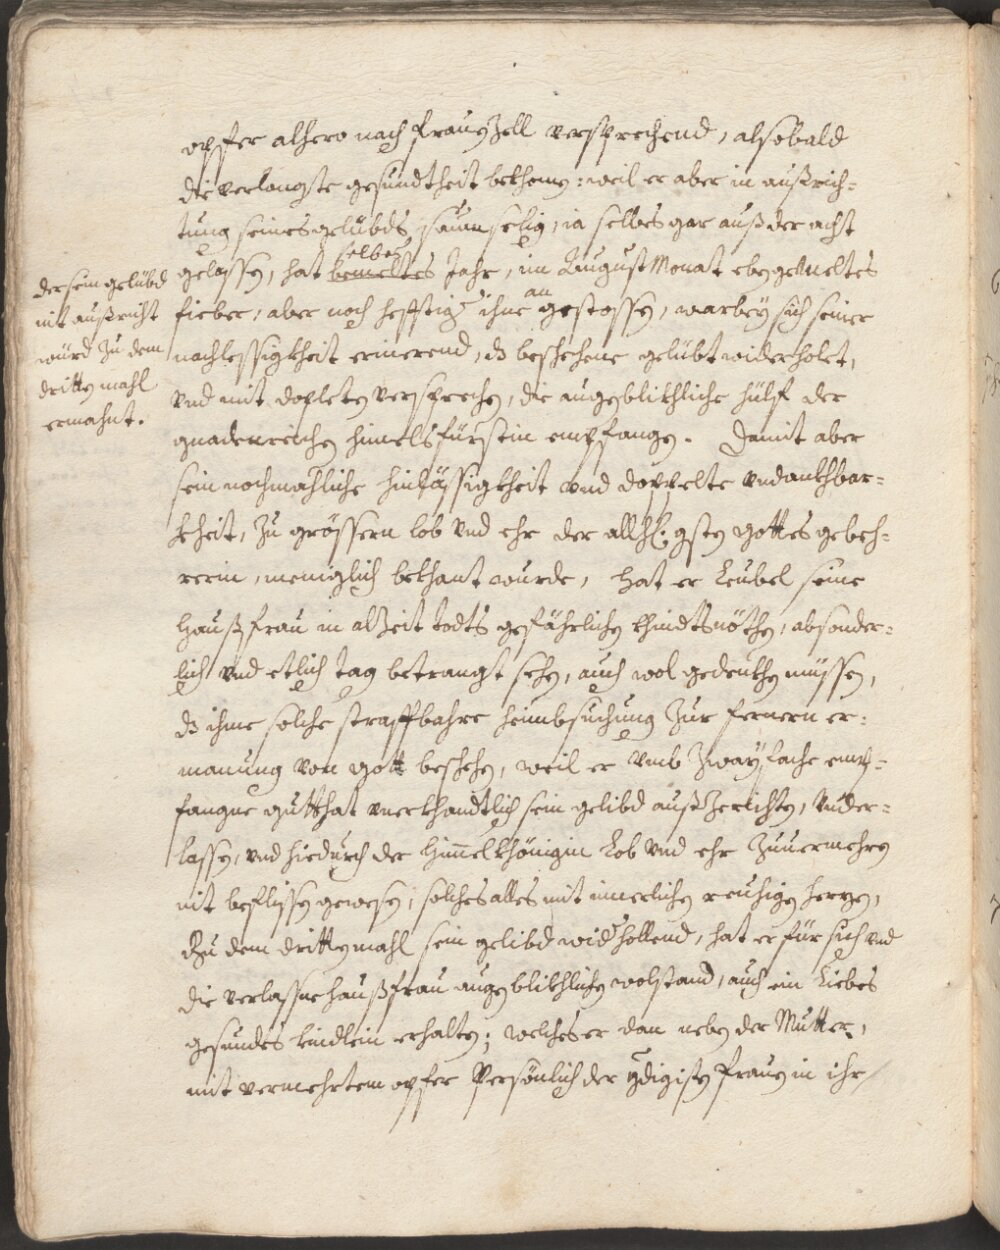 opfer alhero nach frauenzell versprechend, alsobald
die verlangte gesundtheit bekhomen: weil er aber in außrich=
tung seines gelübds saumselig, ia selbes gar auß der acht
gelassen, hat selbes bemeltes Jahr, im August Monat eben gemeltes
der sein gelübd
nit außricht
würd zu dem
dritten mahl
ermahnt.
fieber, aber noch hefftig ihne an gestossen, warbey sich seiner
nachlessigkheit erinerend, dz beschehene gelübt widerholet,
vnd mit dopleten versprechen, die augenblikhliche hülf der
gnadenreichen himelsfürstin empfangen. Damit aber
sein nochmahliche hinlässigkheit vnd doppelte vndankhbar=
kheit, zu grössern lob vnd ehr der allhl:gsten gottes gebeh=
rerin, meniglich bekhant wurde, hat er Leubel seine
haußfrau in alzeit todts gefährlichen khindtsnöthen, absonder=
lich vnd etlich tag betrangt sehen, auch wol gedenkhen müssen,
dz ihme solche straffbahre heimbsuchung zur fernern er=
manung von gott beschehen, weil er vmb zwayfache emp=
fangne gutthat vnerkhandtlich sein gelibd außzerichten, vnder=
lassen, vnd hiedurch der himelkhönigin Lob vnd ehr zuuermehren
nit beflissen gewesen, solches alles mit innerlichen reuhigen herzen,
Zu dem dritten mahl sein gelibd widerhollend, hat er für sich vnd
die verlassne haußfrau augenblikhlichen wolstand, auch ein Liebes
gesundes kindlein erhalten; welches er dan neben der Mutter,
mit vermehrtem opfer Persönlich der gdigisten frauen in ihr